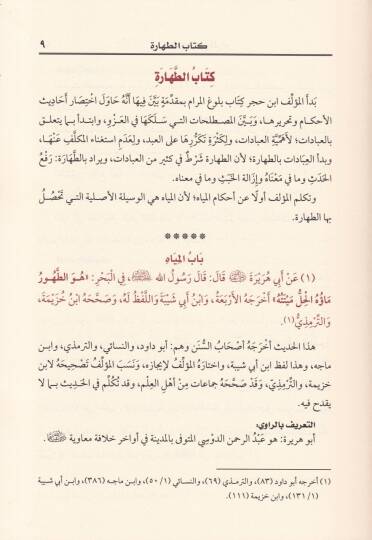 كتاب الطهارة
٩
كِتَابُ الطَّهَارَةِ
بَدأَ المؤلِّف ابن حجر كِتَاب بلوغ المرام بمقدِّمَةٍ بَيَّنَ فِيهَا أَنَّهُ حَاوَلَ اختِصَار أحَادِيث
الأحكام وتحريرها، وَبَيَّنَ المصطلحات التي سَلَكَهَا في العَزْو، وابتدأ بما يتعلق
بالعبادات؛ لأَهمِّيَّةِ العبادات، ولِكَثْرَةِ تَكَرُّرِهَا على العبد، ولِعدَمِ استغناء المكلَّفِ عَنْهَا،
وبدأ العِبَادات بالطهارة؛ لأن الطهارة شَرْطٌ في كثير من العبادات، ويراد بالطَّهَارَةِ: رَفْعُ
الحَدَثِ وما في مَعْنَاهُ وإزالة الخَبَثِ وما في معناه.
وتكلم المؤلف أولًا عن أحكام المياه؛ لأن المياه هي الوسيلة الأصلية التي تَحْصُلُ
بها الطهارة.
*****
بَابُ المِيَاهِ
(١) عَنْ أَبِي هُرَيْرَةَ ﵁ قَالَ: قَالَ رَسُولُ الله ﷺ، فِي الْبَحْرِ: «هُوَ الطَّهُورُ
مَاؤُهُ الْحِلُّ مَيْتَتُهُ» أَخْرَجَهُ الأَرْبَعَةُ، وَابْنُ أَبِي شَيْبَةَ وَاللَّفْظُ لَهُ، وَصَحَّحَهُ ابْنُ خُزَيْمَةَ،
وَالتِّرْمِذِيُّ(١).
هذا الحديث أَخْرَجَهُ أَصْحَابُ السُّنَن وهم: أبو داود، والنسائي، والترمذي، وابن
ماجه، وهذا لفظ ابن أبي شيبة، واختارَهُ المؤلِّفُ لإيجازه، وَنَسَبَ المؤلِّفُ تَصْحِيحَهُ لابن
خزيمة، والتِّرْمِذِيِّ، وَقَدْ صَحَّحَهُ جماعات مِنْ أهْلِ العِلْمِ، وقد تُكُلِّم في الحَدِيث بما لا
يقدح فيه.
التعريف بالراوي:
أبو هريرة: هو عَبْدُ الرحمن الدوْسِي المتوفى بالمدينة في أواخر خلافة معاوية ﵁.
(١) أخرجه أبو داود (٨٣)، والترمذي (٦٩)، والنسائي (١/ ٥٠)، وابن ماجه (٣٨٦)، وابن أبي شيبة
(١/ ١٣١)، وابن خزيمة (١١١).